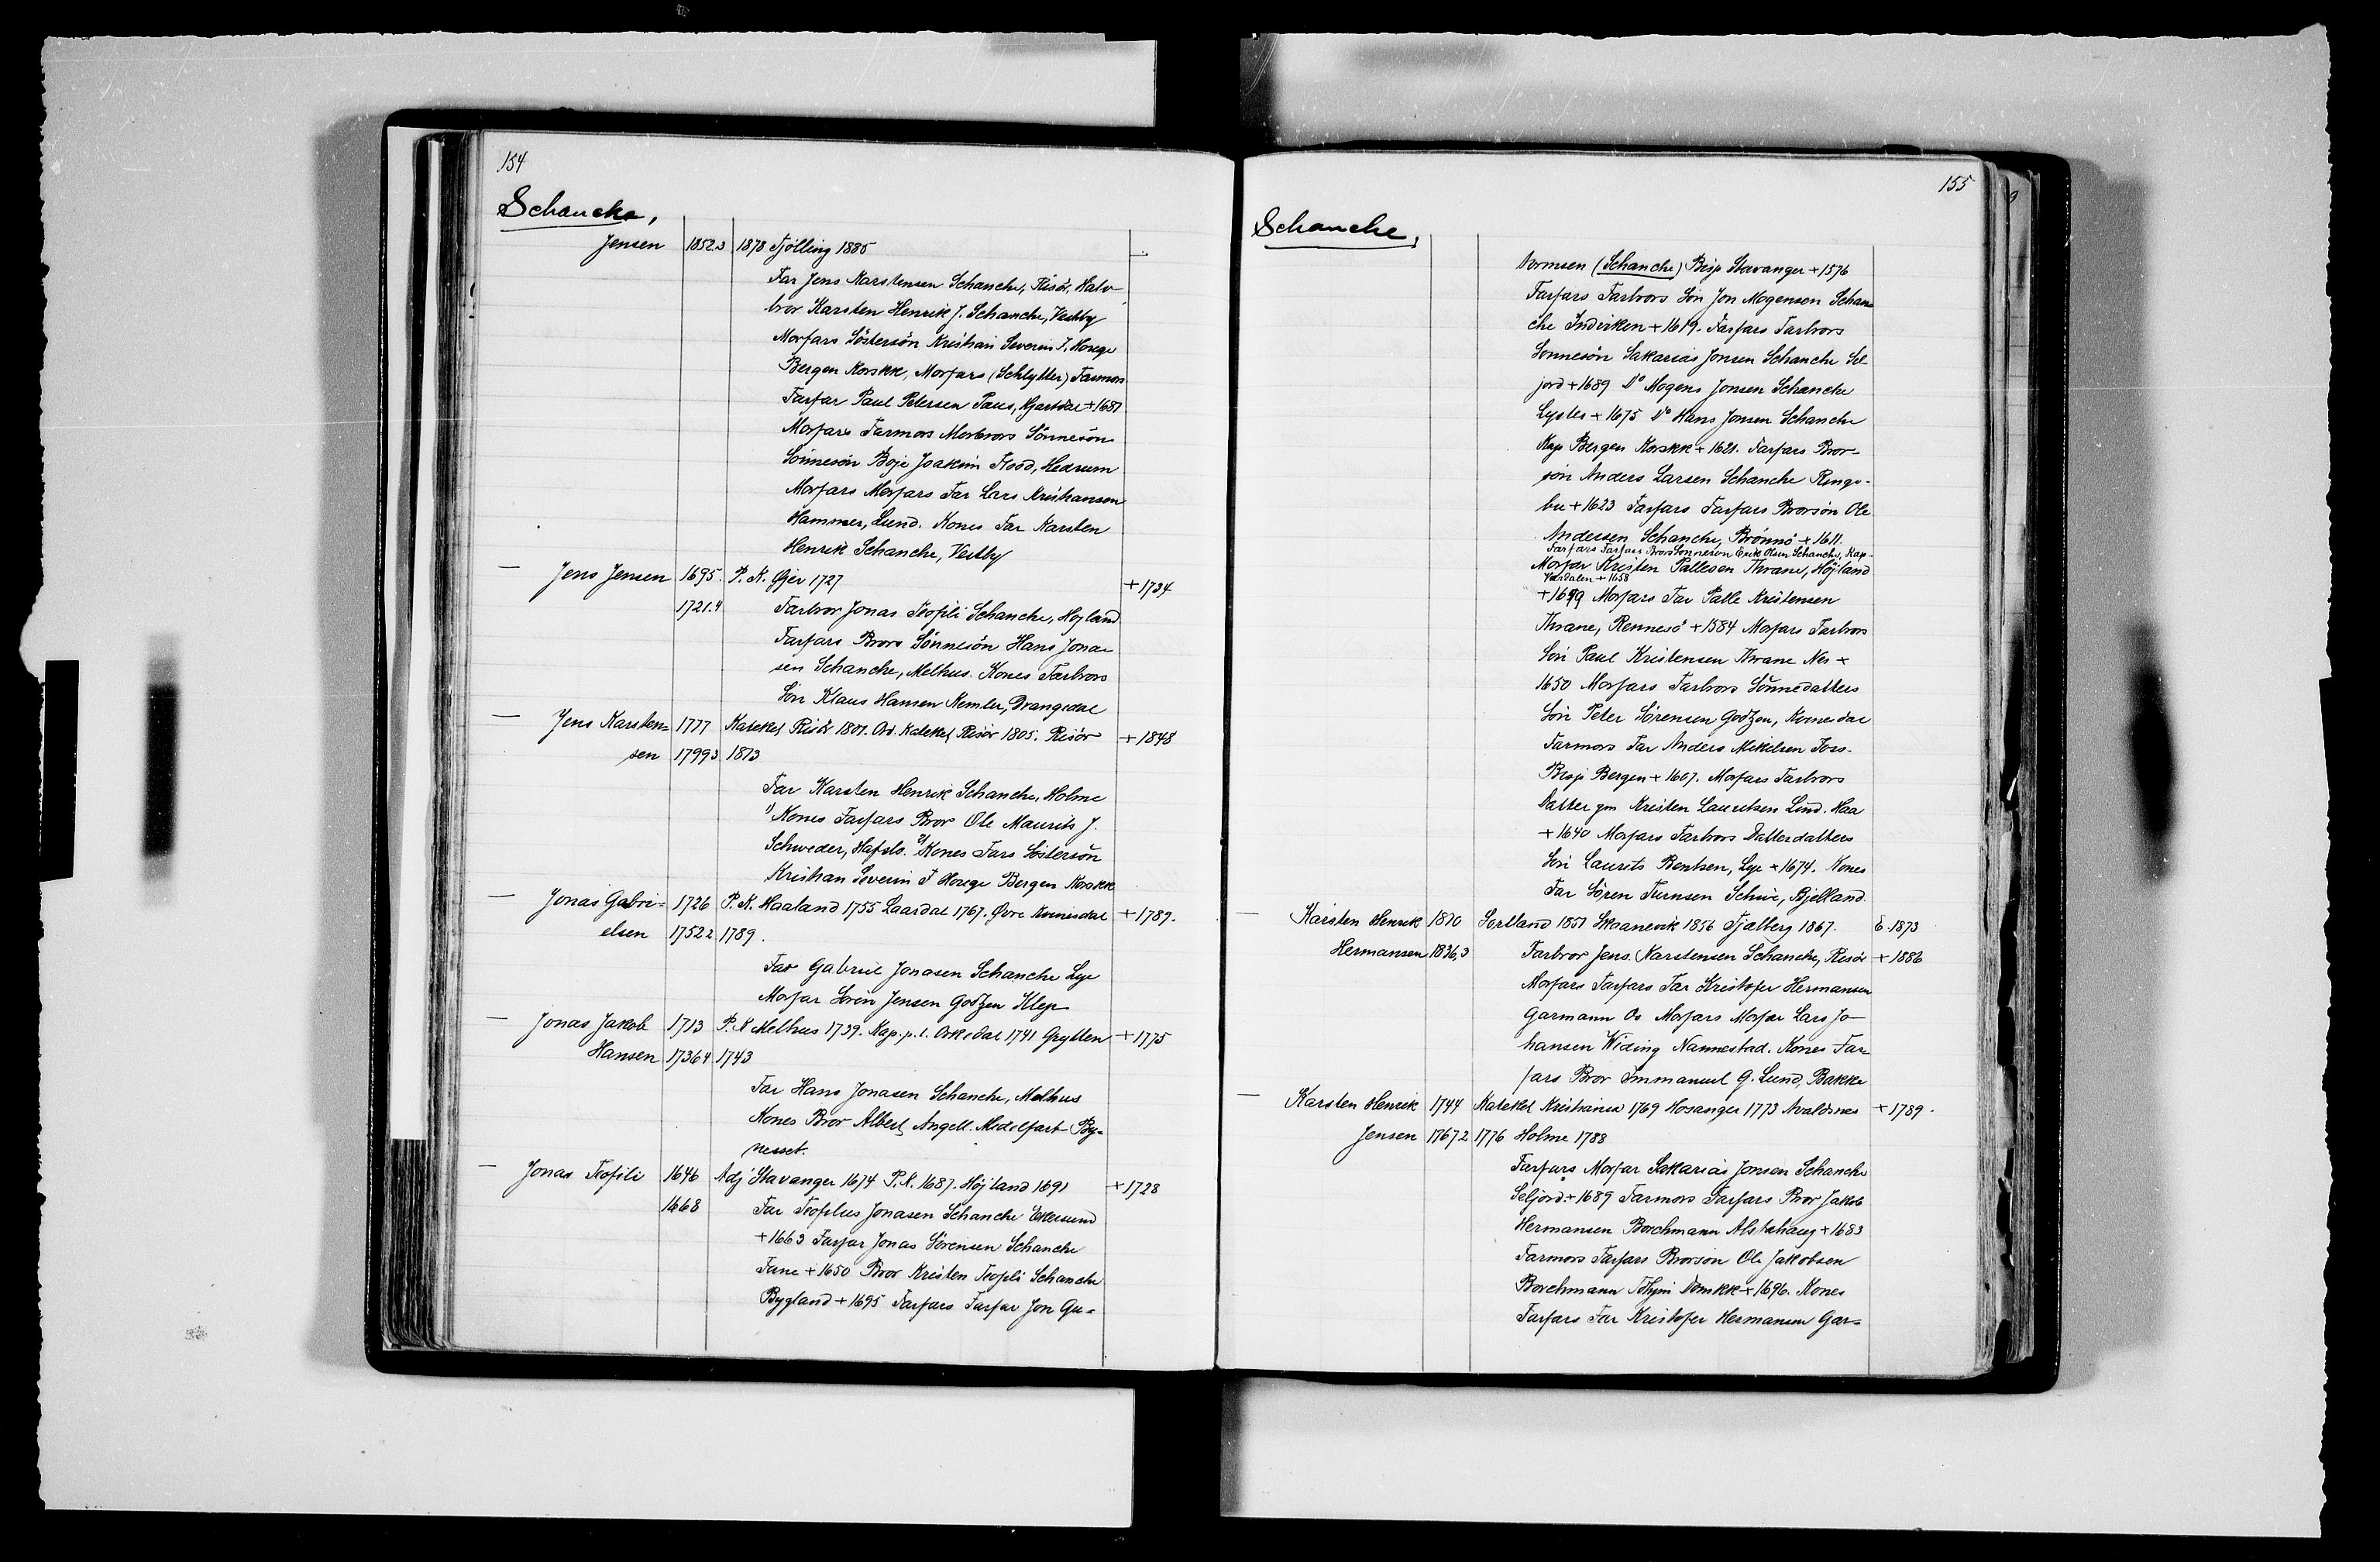 154
Schancke,
Jensen 1852.3 1878 Tjölling 1885 -
Far Jens Karstensen Schanche, Risör, Halv-
bror Karsten Henrik J. Schanche, Vestby
Morfars Söstersön Kristian Severin T. Horge
Bergen Korskk, Morfars (Schlytter) Farmors
Farfar Paul Petersen Paus, Kjartdal + 1681
Morfars Farmors Morbrors Sönnesön
Sönnesön Boje Joakim Flood, Hedrum
Morfars Morfars Far Lars Kristiansen
Hammer, Lund. Kones Far Karsten
Henrik Schanche, Vestby
— Jens Jensen 1695. P. K. Gjer 1727 + 1734
1721.4 Farbror Jonas Teofili Schanche, Hojland
Farfars Brors Sönnesön Hans Jona-
sen Schanche, Melhus. Kones Farbrors
Sön Klaus Hansen Kemler, Drangedal
— Jens Karsten- 1777 Kateket Risör 1801. Ord. Kateket Risör 1805. Risör + 1848
sen 1799 3 1813
Far Karsten Henrik Schanche, Holme
1) Kones Farfars Bror Ole Maurits J.
Schweder, Hafslo. 2) Kones Fars Söstersön
Kristian Severin T Horge Bergen Korskk
— Jonas Gabri- 1726 P. K. Haaland 1755 Laardal 1767. Övre Kvinesdal + 1789.
elsen 1752 2 1789.
Far Gabriel Jonasen Schanche Lye
Morfar Sören Jensen Godzen Klep
— Jonas Jakob 1713 P. K Melhus 1739. Kap. p. l. Orkedal 1741 Grytten + 1775
Hansen 1736 4 1743
Far Hans Jonasen Schanche, Melhus
Kones Bror Albert Angell. Medelfart By-
nesset.
— Jonas Teofili 1646 Adj Stavanger 1674 P. K. 1687. Höjland 1691 + 1728
1668 Far Teofilus Jonasen Schanche Ekersund
+ 1663 Farfar Jonas Sörensen Schanche
Fane + 1650 Bror Kristen Teofili Schanche
Bygland + 1695 Farfars Farfar Jon Gu-
155
Schanche,
tormsen (Schanche) Bisp Stavanger + 1576
Farfars Farbrors Sön Jon Mogensen Schan
che Indviken + 1619. Farfars Farbrors
Sonnesön Sakarias Jonsen Schanche Sel
jord + 1689 Do Mogens Jonsen Schanche
Lyster + 1675 Do Hans Jonsen Schanche
Kap Bergen Korskk + 1621. Farfars Bror-
sön Anders Larsen Schanche Ringe-
bu + 1623 Farfars Farfars Brorsön Ole
Andersen Schanche, Brönnö + 1611.
Farfars Farfars Brors Sonneson Erik Olsen Schanche, Kap-
Morfar Kristen Pallesen Thrane, Höjland
Værdalen + 1658
+ 1649 Morfars Far Palle Kristensen
Thrane, Rennesö + 1584 Morfars Farbrors
Sön Paul Kristensen Thrane Nes +
1650 Morfars Farbrors Sönnedatters
Sön Peter Sörensen Godzen, Kvinesdal
Farmors Far Anders Mikelsen Fors-
Bisp Bergen + 1607. Morfars Farbrors
Datter gm Kristen Lauritsen Lind. Haa
+ 1640 Morfars Farbrors Datterdatters
Sön Laurits Bentsen, Lye + 1674. Kones
Far Sören Turnsen Schive, Bjelland.
— Karsten Henrik 1810 Sortland 1851 Skaanevik 1856 Fjelberg 1867. E. 1873
Hermansen 1836,3 Farbror Jens Karstensen Schanche, Risör + 1886
Morfars Farfars Far Kristofer Hermansen
Garmann Os Morfars Morfar Lars Jo-
hansen Widing Nannestad. Kones Far-
fars Bror Immanuel G. Lund, Bakke
— Karsten Henrik 1744 Kateket Kristiania 1769 Hosanger 1773 Avaldsnes + 1789.
Jensen 1767 2 1776 Holme 1788
Farfars Morfar Sakarias Jonsen Schanche
Seljord + 1689 Farmors Farfars Bror Jakob
Hermansen Borchmann Alstahaug + 1683
Farmors Farfars Brorson Ole Jakobsen
Borchmann Tthjm Domkk + 1696. Kones
Farfars Far Kristofer Hermansen Gar-